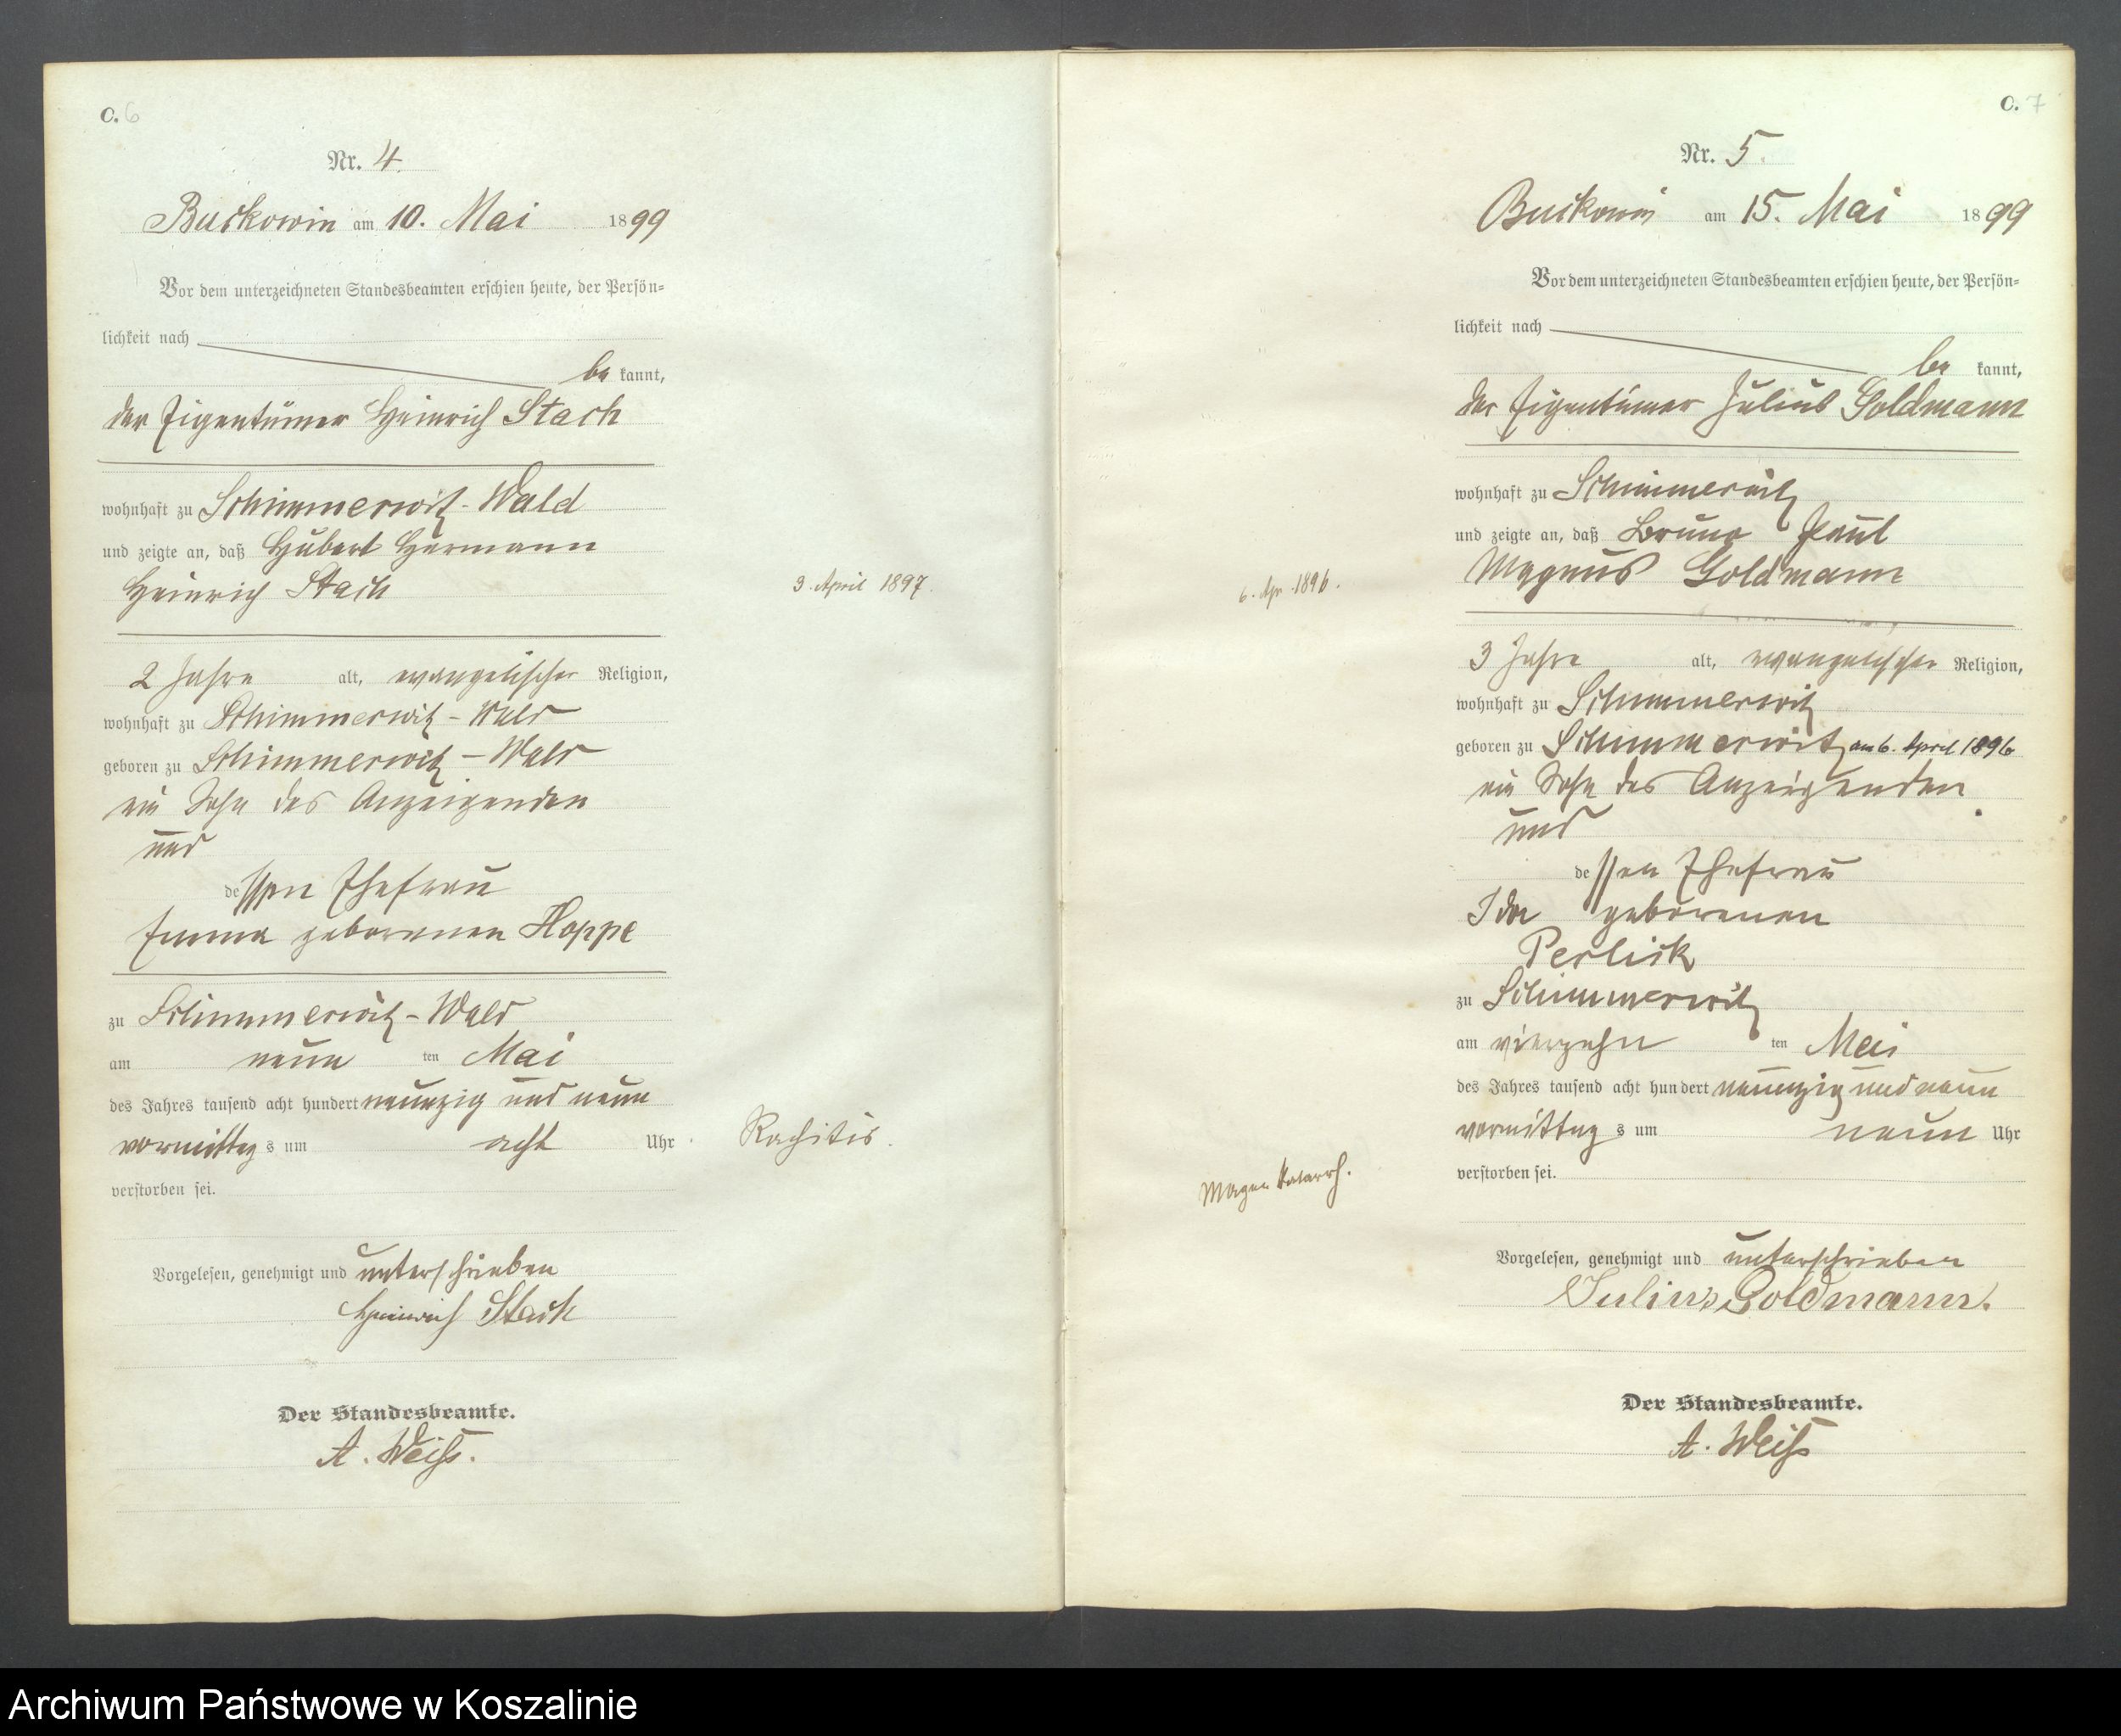 C. 6
Nr. 4.
Buckowin am 10. Mai 1899
Vor dem unterzeichneten Standesbeamten erschien heute, der Persön-
lichkeit nach
be kannt,
der Eigentümer Heinrich Stach
wohnhaft zu Schimmerwitz-Wald
und zeigte an, daß Hubert Hermann
Heinrich Stach
3. April 1897.
2 Jahre alt, evangelischer Religion,
wohnhaft zu Schimmerwitz-Wald
geboren zu Schimmerwitz-Wald
ein Sohn des Anzeigenden
und
dessen Ehefrau
Emma geborenen Hoppe
zu Schimmerwitz-Wald
am neun ten Mai
des Jahres tausend acht hundert neunzig und neun
vormittag s um acht Uhr
Rachitis.
verstorben sei.
Vorgelesen, genehmigt und unterschrieben
Heinrich Stach
Der Standesbeamte.
A. Weiß.
C. 7
Nr. 5.
Buckowin am 15. Mai 1899
Vor dem unterzeichneten Standesbeamten erschien heute, der Persön-
lichkeit nach
be kannt,
der Eigentümer Julius Goldmann
wohnhaft zu Schimmerwitz
und zeigte an, daß Bruno Paul
Magnus Goldmann
6. Apr. 1896.
3 Jahre alt, evangelischer Religion,
wohnhaft zu Schimmerwitz
geboren zu Schimmerwitz am 6. April 1896
ein Sohn des Anzeigenden
und
dessen Ehefrau
Ida geborenen
Perlick
zu Schimmerwitz
am vierzehn ten Mai
des Jahres tausend acht hundert neunzig und neun
vormittag s um neun Uhr
Magenkatarrh.
verstorben sei.
Vorgelesen, genehmigt und unterschrieben
Julius Goldmann.
Der Standesbeamte.
A. Weiß
Archiwum Państwowe w Koszalinie